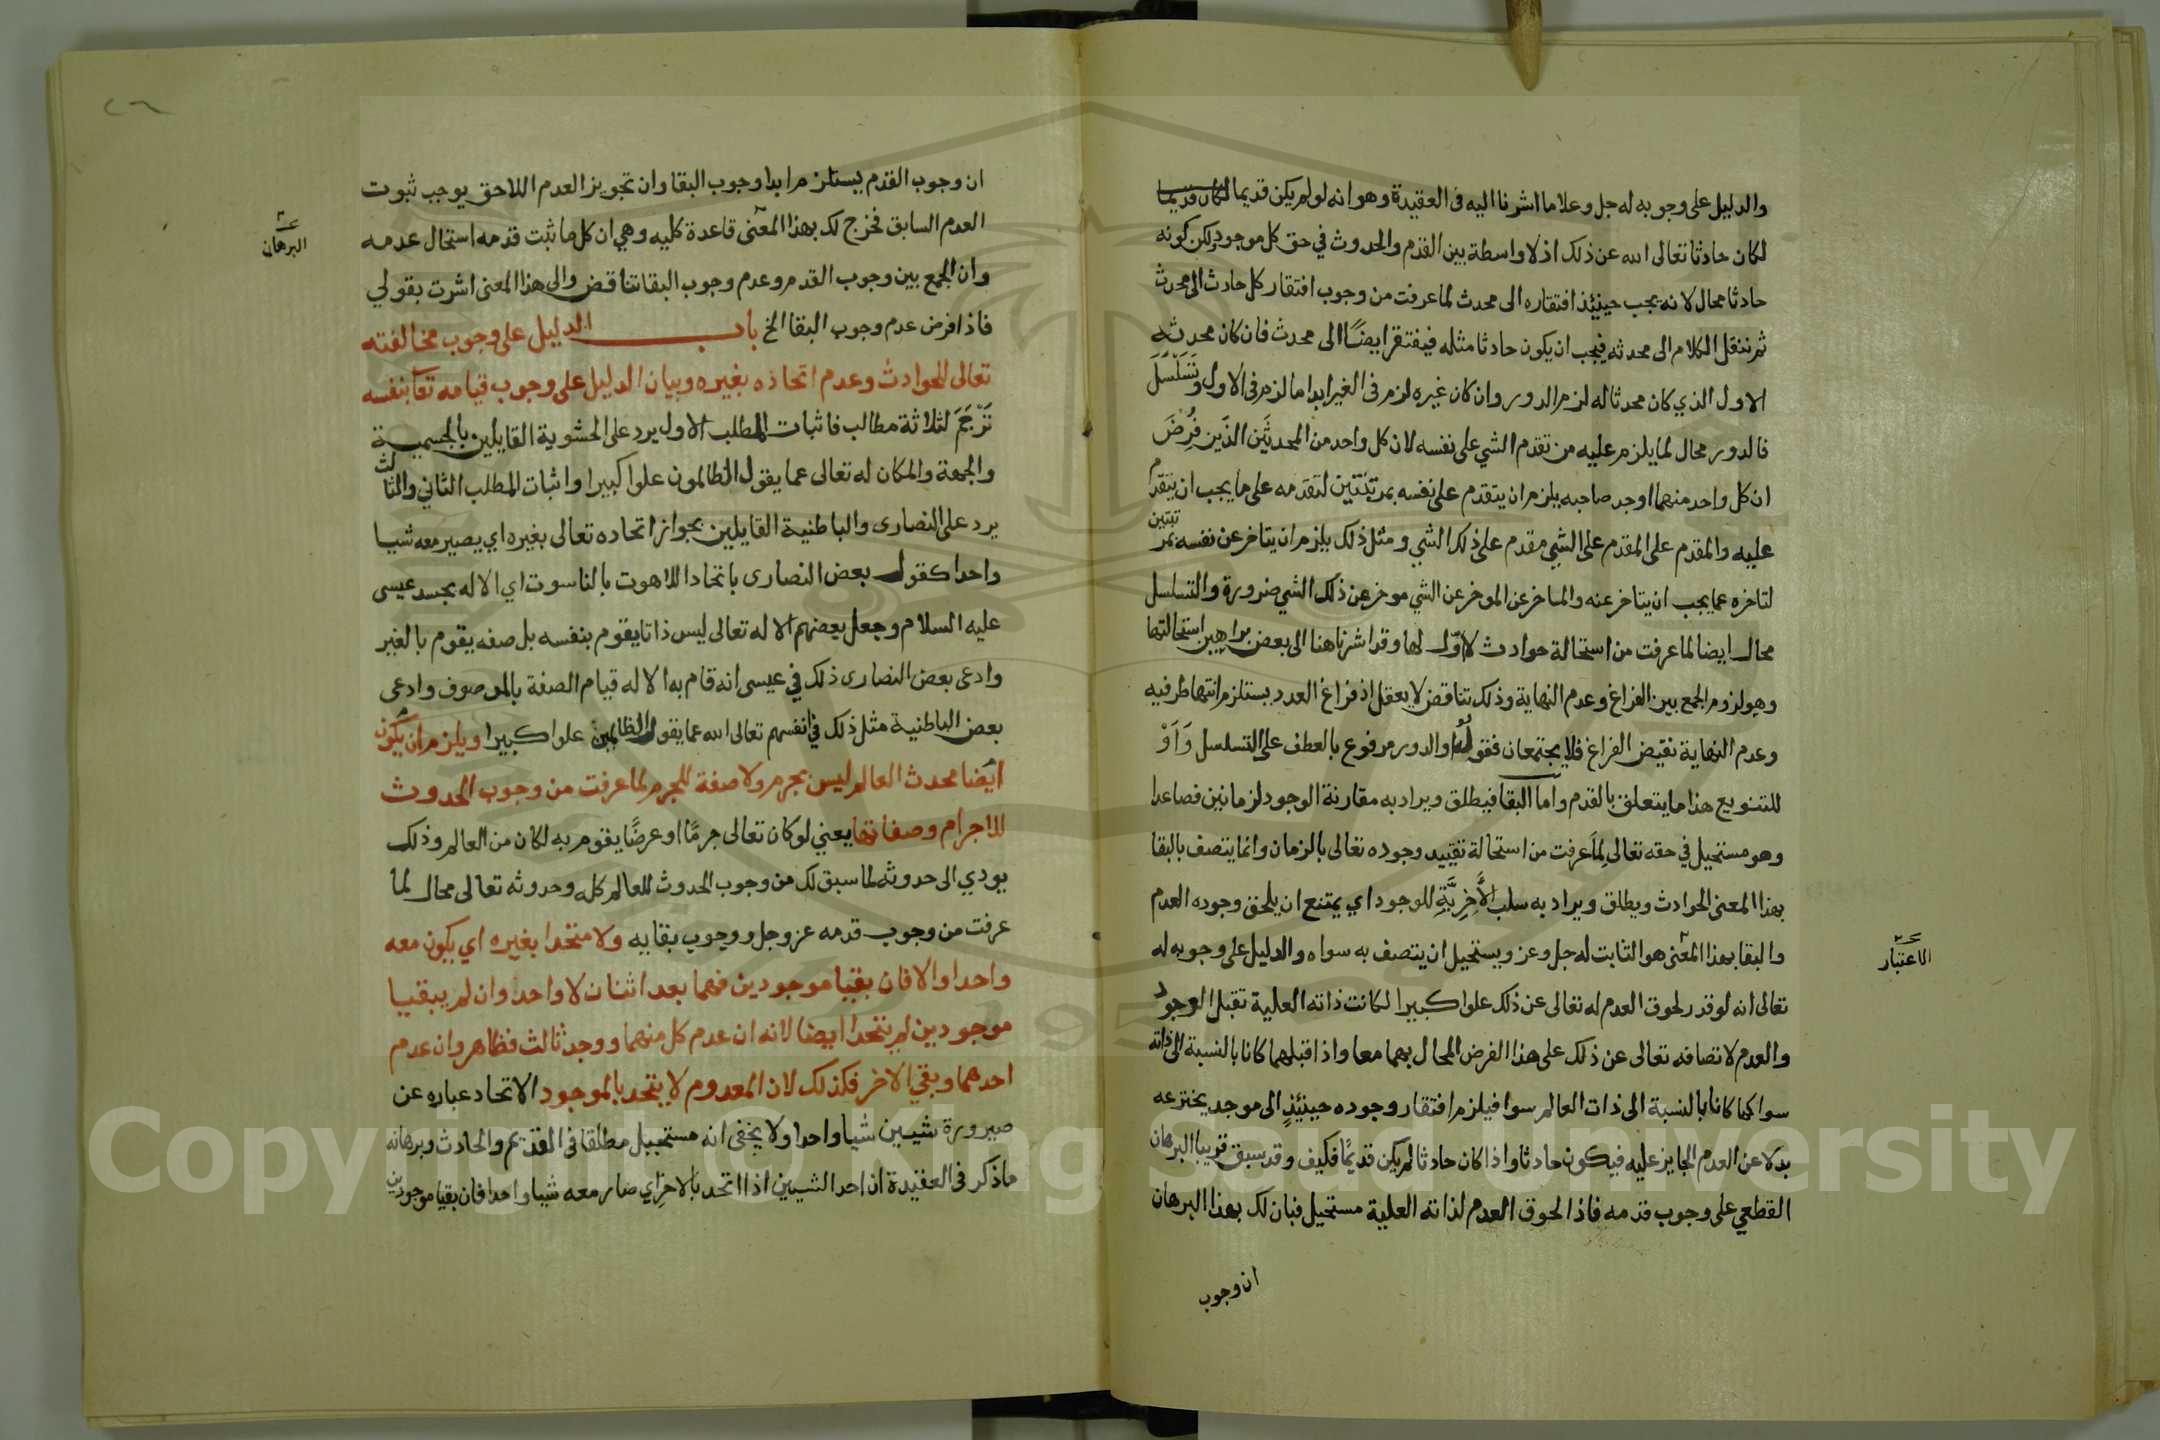 والدليل على وجوبه له جل وعلا ما اشرنا اليه فى العقيدة وهو انه لو لم يكن قديما لكان قديما
لكان حادثا تعالى الله عن ذلك اذ لا واسطة بين القدم والحدوث في حق كل موجود لكن كونه
حادثا محال لانه يجب حينئذ افتقاره الى محدث لما عرفت من وجوب افتقار كل حادث الى محدث
ثم ننقل الكلام الى محدثه فيجب ان يكون حادثا مثله فيفتقر ايضًا الى محدث فان كان محدثه
الاول الذي كان محدثا له لزم الدور وان كان غيره لزم فى الغير ابدا ما لزم فى الاول وتَسَلْسَلَ
فالدور محال لما يلزم عليه من تقدم الشي على نفسه لان كل واحد من المحدثَين الذَين فُرِضَ
ان كل واحد منهما اوجد صاحبه يلزم ان يتقدم على نفسه بمرتبتين لتقدمه على ما يجب ان يتقدم
عليه والمقدم على المقدم على الشي مقدم على ذلك الشي ومثل ذلك يلزم ان يتاخر عن نفسه بمرتبتين
لتاخره عما يجب ان يتاخر عنه والماخر عن الموخر عن الشي موخر عن ذلك الشي ضرورة والتسلسل
محال ايضا لما عرفت من استحالة حوادث لا اوّل لها وقد اشرنا هنا الى بعض براهين استحالتها
وهو لزوم الجمع بين الفراغ وعدم النهاية وذلك تناقض لا يعقل اذ فراغ العدد يستلزم انتها طرفيه
وعدم النهاية نقيض الفراغ فلا يجتمعان فقوله او الدور مرفوع بالعطف على التسلسل وَاَوْ
للتنويع هذا ما يتعلق بالقدم واما البقا فيطلق ويراد به مقارنة الوجود لزمانين فصاعدا
وهو مستحيل في حقه تعالى لِمَا عرفت من استحالة تقييد وجوده تعالى بالزمان وانما يتصف بالبقا
بهذا المعنى الحوادث ويطلق ويراد به سلب الأَخِرِيَّةِ للوجود اي يمتنع ان يلحق وجوده العدم
والبقا بهذا المعنى هو الثابت له جل وعز ويستحيل ان يتصف به سواه والدليل على وجوبه له
الاعتبار
تعالى انه لو قدر لحوق العدم له تعالى عن ذلك علوا كبيرا لكانت ذاته العلية تقبل الوجود
والعدم لاتصافه تعالى عن ذلك على هذا الفرض المحال بهما معا واذا قبلهما كانا بالنسبة الى ذاته
سوا كما كانا بالنسبة الى ذات العالم سوا فيلزم افتقار وجوده حينئذٍ الى موجد يخترعه
بدلا عن العدم الجايز عليه فيكون حادثا واذا كان حادثا لم يكن قديمًا فكيف وقد سبق قريبا البرهان
القطعي على وجوب قدمه فاذا لحوق العدم لذاته العلية مستحيل فبان لك بهذا البرهان
ان وجوب
ان وجوب القدم يستلزم ابدا وجوب البقا وان تجويز العدم اللاحق يوجب ثبوت
العدم السابق فخرج لك بهذا المعنى قاعدة كليه وهي ان كل ما ثبت قدمه استحال عدمه
البرهان
وان الجمع بين وجوب القدم وعدم وجوب البقا تناقض والى هذا المعنى اشرت بقولي
فاذا فرض عدم وجوب البقا الخ باب الدليل على وجوب مخالفته
تعالى للحوادث وعدم اتحاذه بغيره وبيان الدليل على وجوب قيامه تعا بنفسه
تَرْجَمَ لثلاثة مطالب فاثبات المطلب الاول يرد على الحشوية القايلين بالجسمية
والجهة والمكان له تعالى عما يقول الظالمون علوا كبيرا واثبات المطلب الثاني والثالث
يرد على النصارى والباطنية القايلين بجواز اتحاده تعالى بغيره اي يصير معه شيا
واحدا كقول بعض النصارى باتحاد اللاهوت بالناسوت اي الاله بجسد عيسى
عليه السلام وجعل بعضهم الاله تعالى ليس ذاتا يقوم بنفسه بل صفه يقوم بالغير
وادعى بعض النصارى ذلك في عيسى انه قام به الاله قيام الصفة بالموصوف وادعى
بعض الباطنية مثل ذلك في انفسهم تعالى الله عما يقول الظالمين علوا كبيرا ويلزم ان يكون
ايضا محدث العالم ليس بجرم ولا صفة للجرم لما عرفت من وجوب الحدوث
للاجرام وصفاتها يعني لو كان تعالى جرمًا او عرضًا يقوم به لكان من العالم وذلك
يودي الى حدوثه لما سبق لك من وجوب الحدوث للعالم كله وحدوثه تعالى محال لما
عرفت من وجوب قدمه عز وجل ووجوب بقايه ولا متحدا بغيره اي يكون معه
واحدا والا فان بقيا موجودين فهما بعد اثنان لا واحد وان لم يبقيا
موجودين لم يتحدا ايضا لانه ان عدم كل منهما ووجد ثالث فظاهر وان عدم
احدهما وبقي الاخر فكذلك لان المعدوم لا يتحد بالموجود الاتحاد عباره عن
صيرورة شيين شيا واحدا ولا يخفى انه مستحيل مطلقا فى القديم والحادث وبرهانه
ماذكر فى العقيدة ان احد الشيين اذا اتحد بالاخرِ اي صار معه شيا واحدا فان بقيا موجودين
Copyright © King Saud University
1957